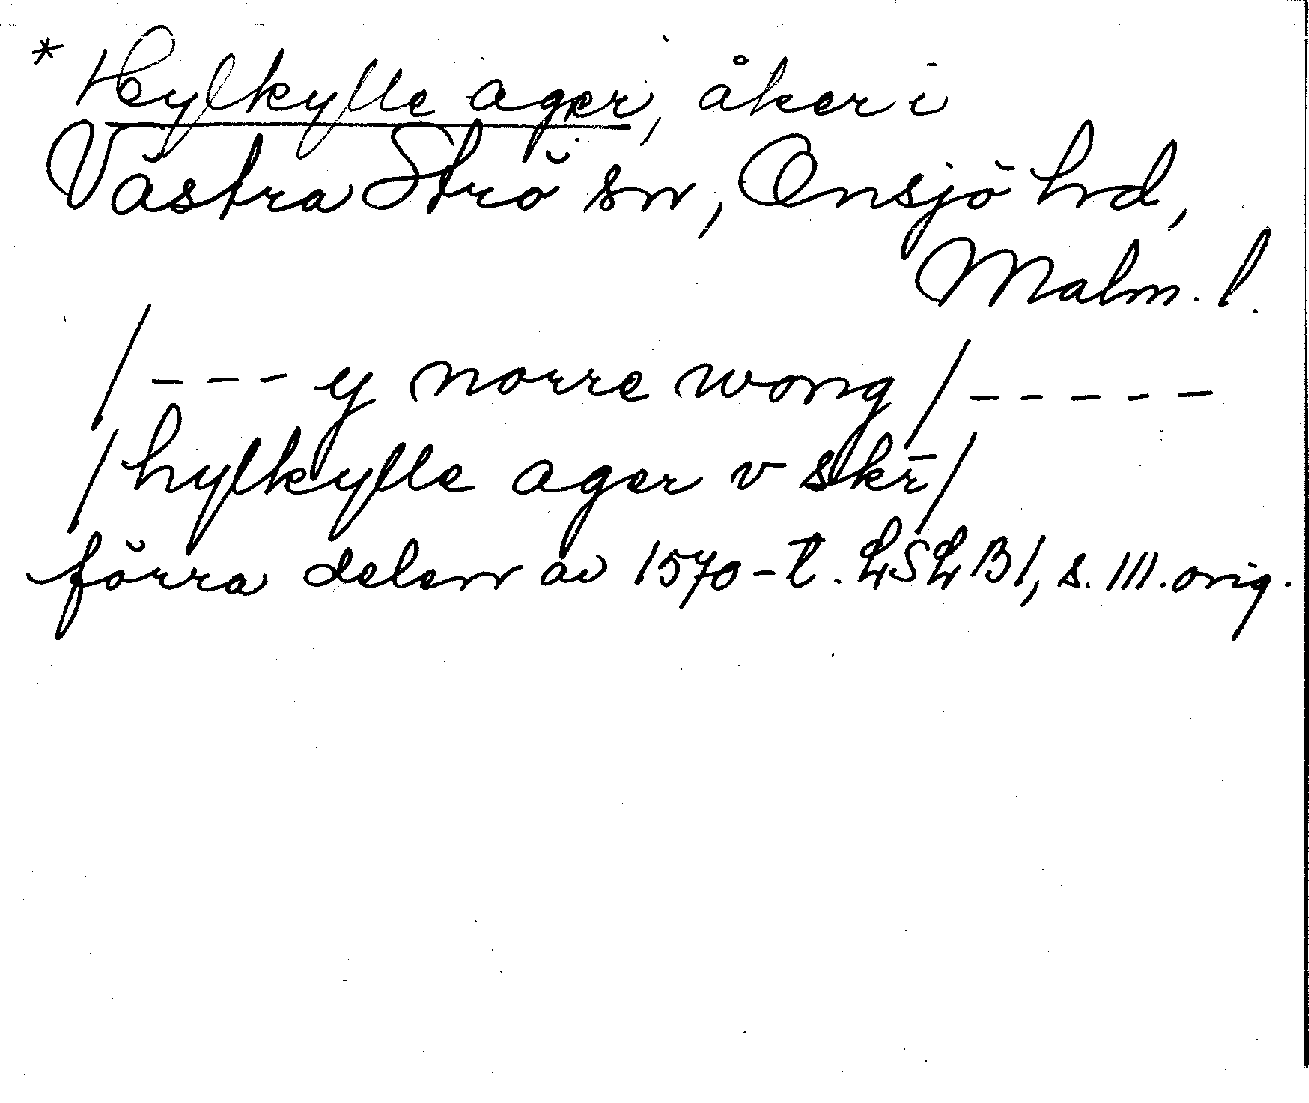 * Hylkylle ager, åker i
Västra Strö sn, Onsjö hd,
Malm. l.
/--- y norre wong /-----
/hylkylle ager v skr̄/
förra delen av 1570-t. LSLB1, s. 111. orig.